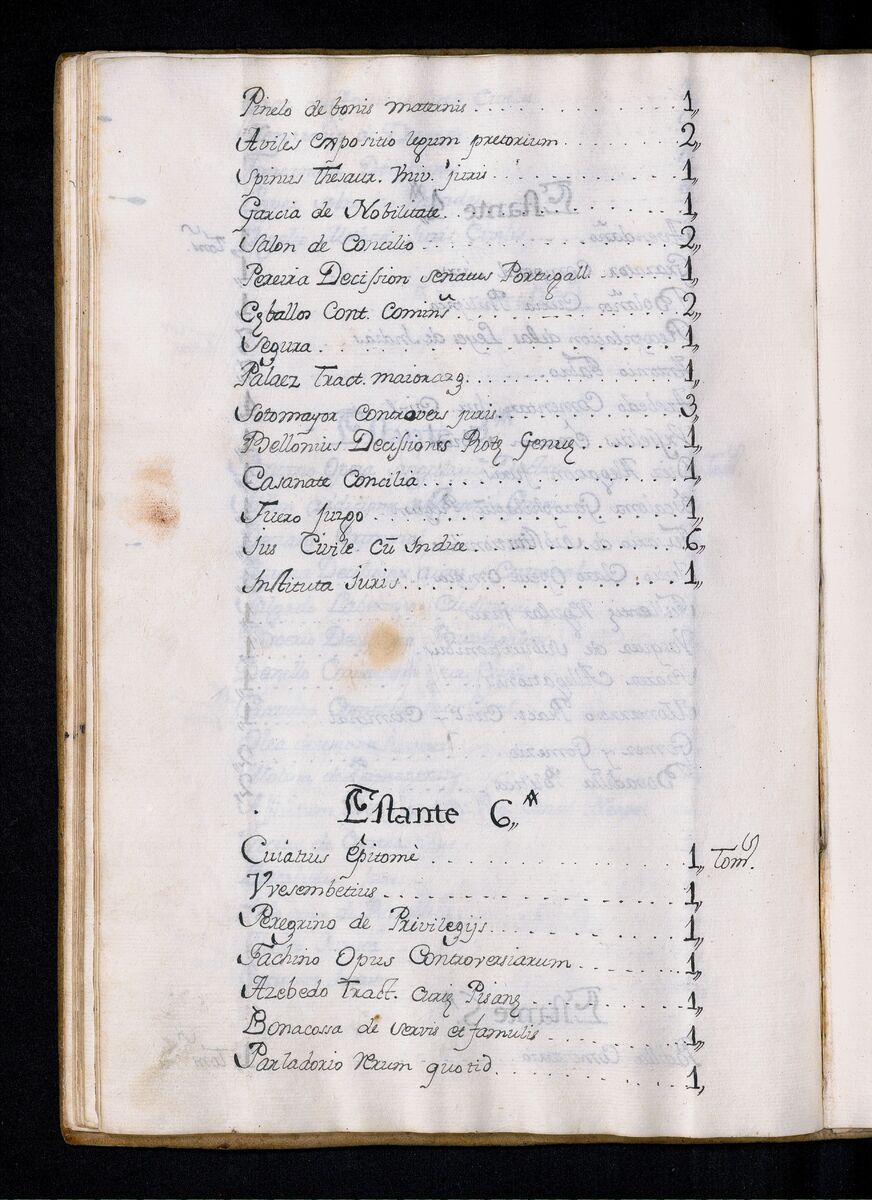 Pinelo de bonis maternis . . . . . . . . . . . 1,,
Avilès expositio legum pretorium . . . . . . 2,,
Spinus Thesaur. Vniv. juris . . . . . . . . . 1,,
Garcia de Nobilitate . . . . . . . . . . . . 1,,
Salon de Concilio . . . . . . . . . . . . . 2,,
Pereira Decission senatus Portugall . . . . 1,,
Cęballos Cont. Comins . . . . . . . . . . . 2,,
Segura . . . . . . . . . . . . . . . . . . 1,,
Palaez Tract. maioraz . . . . . . . . . . . 1,,
Sotomayor Controvers juris . . . . . . . . . 3,,
Bellonius Decissiones Rotę Genuę . . . . . . 1,,
Casanate Concilia . . . . . . . . . . . . . 1,,
Fuero juzgo . . . . . . . . . . . . . . . . 1,,
Jus Civile cū Indice . . . . . . . . . . . . 6,,
Instituta Juris . . . . . . . . . . . . . . 1,,
Estante 6,,ª
Cuiatius Epitomè . . . . . . . . . . . . . 1,, Toms.
Vvesembetius . . . . . . . . . . . . . . . 1,,
Peregrino de Privilegijs . . . . . . . . . . 1,,
Fachino Opus Controversiarum . . . . . . . . 1,,
Azebedo Tract. curię Pisanę . . . . . . . . 1,,
Bonacossa de servis et famulis . . . . . . . 1,,
Parladorio rerum quotid . . . . . . . . . . 1,,